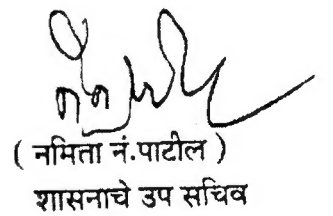 ( नमिता नं.पाटील )
शासनाचे उप सचिव